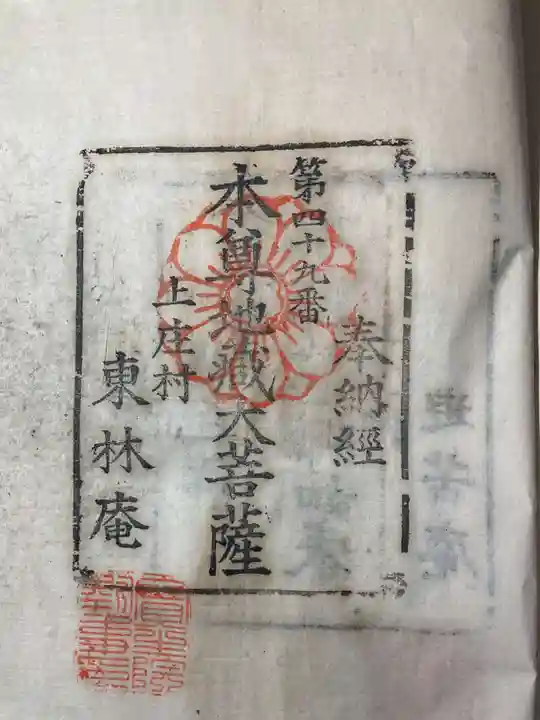 奉納經
第四十九番
本尊地蔵大菩薩
上庄村
東林庵